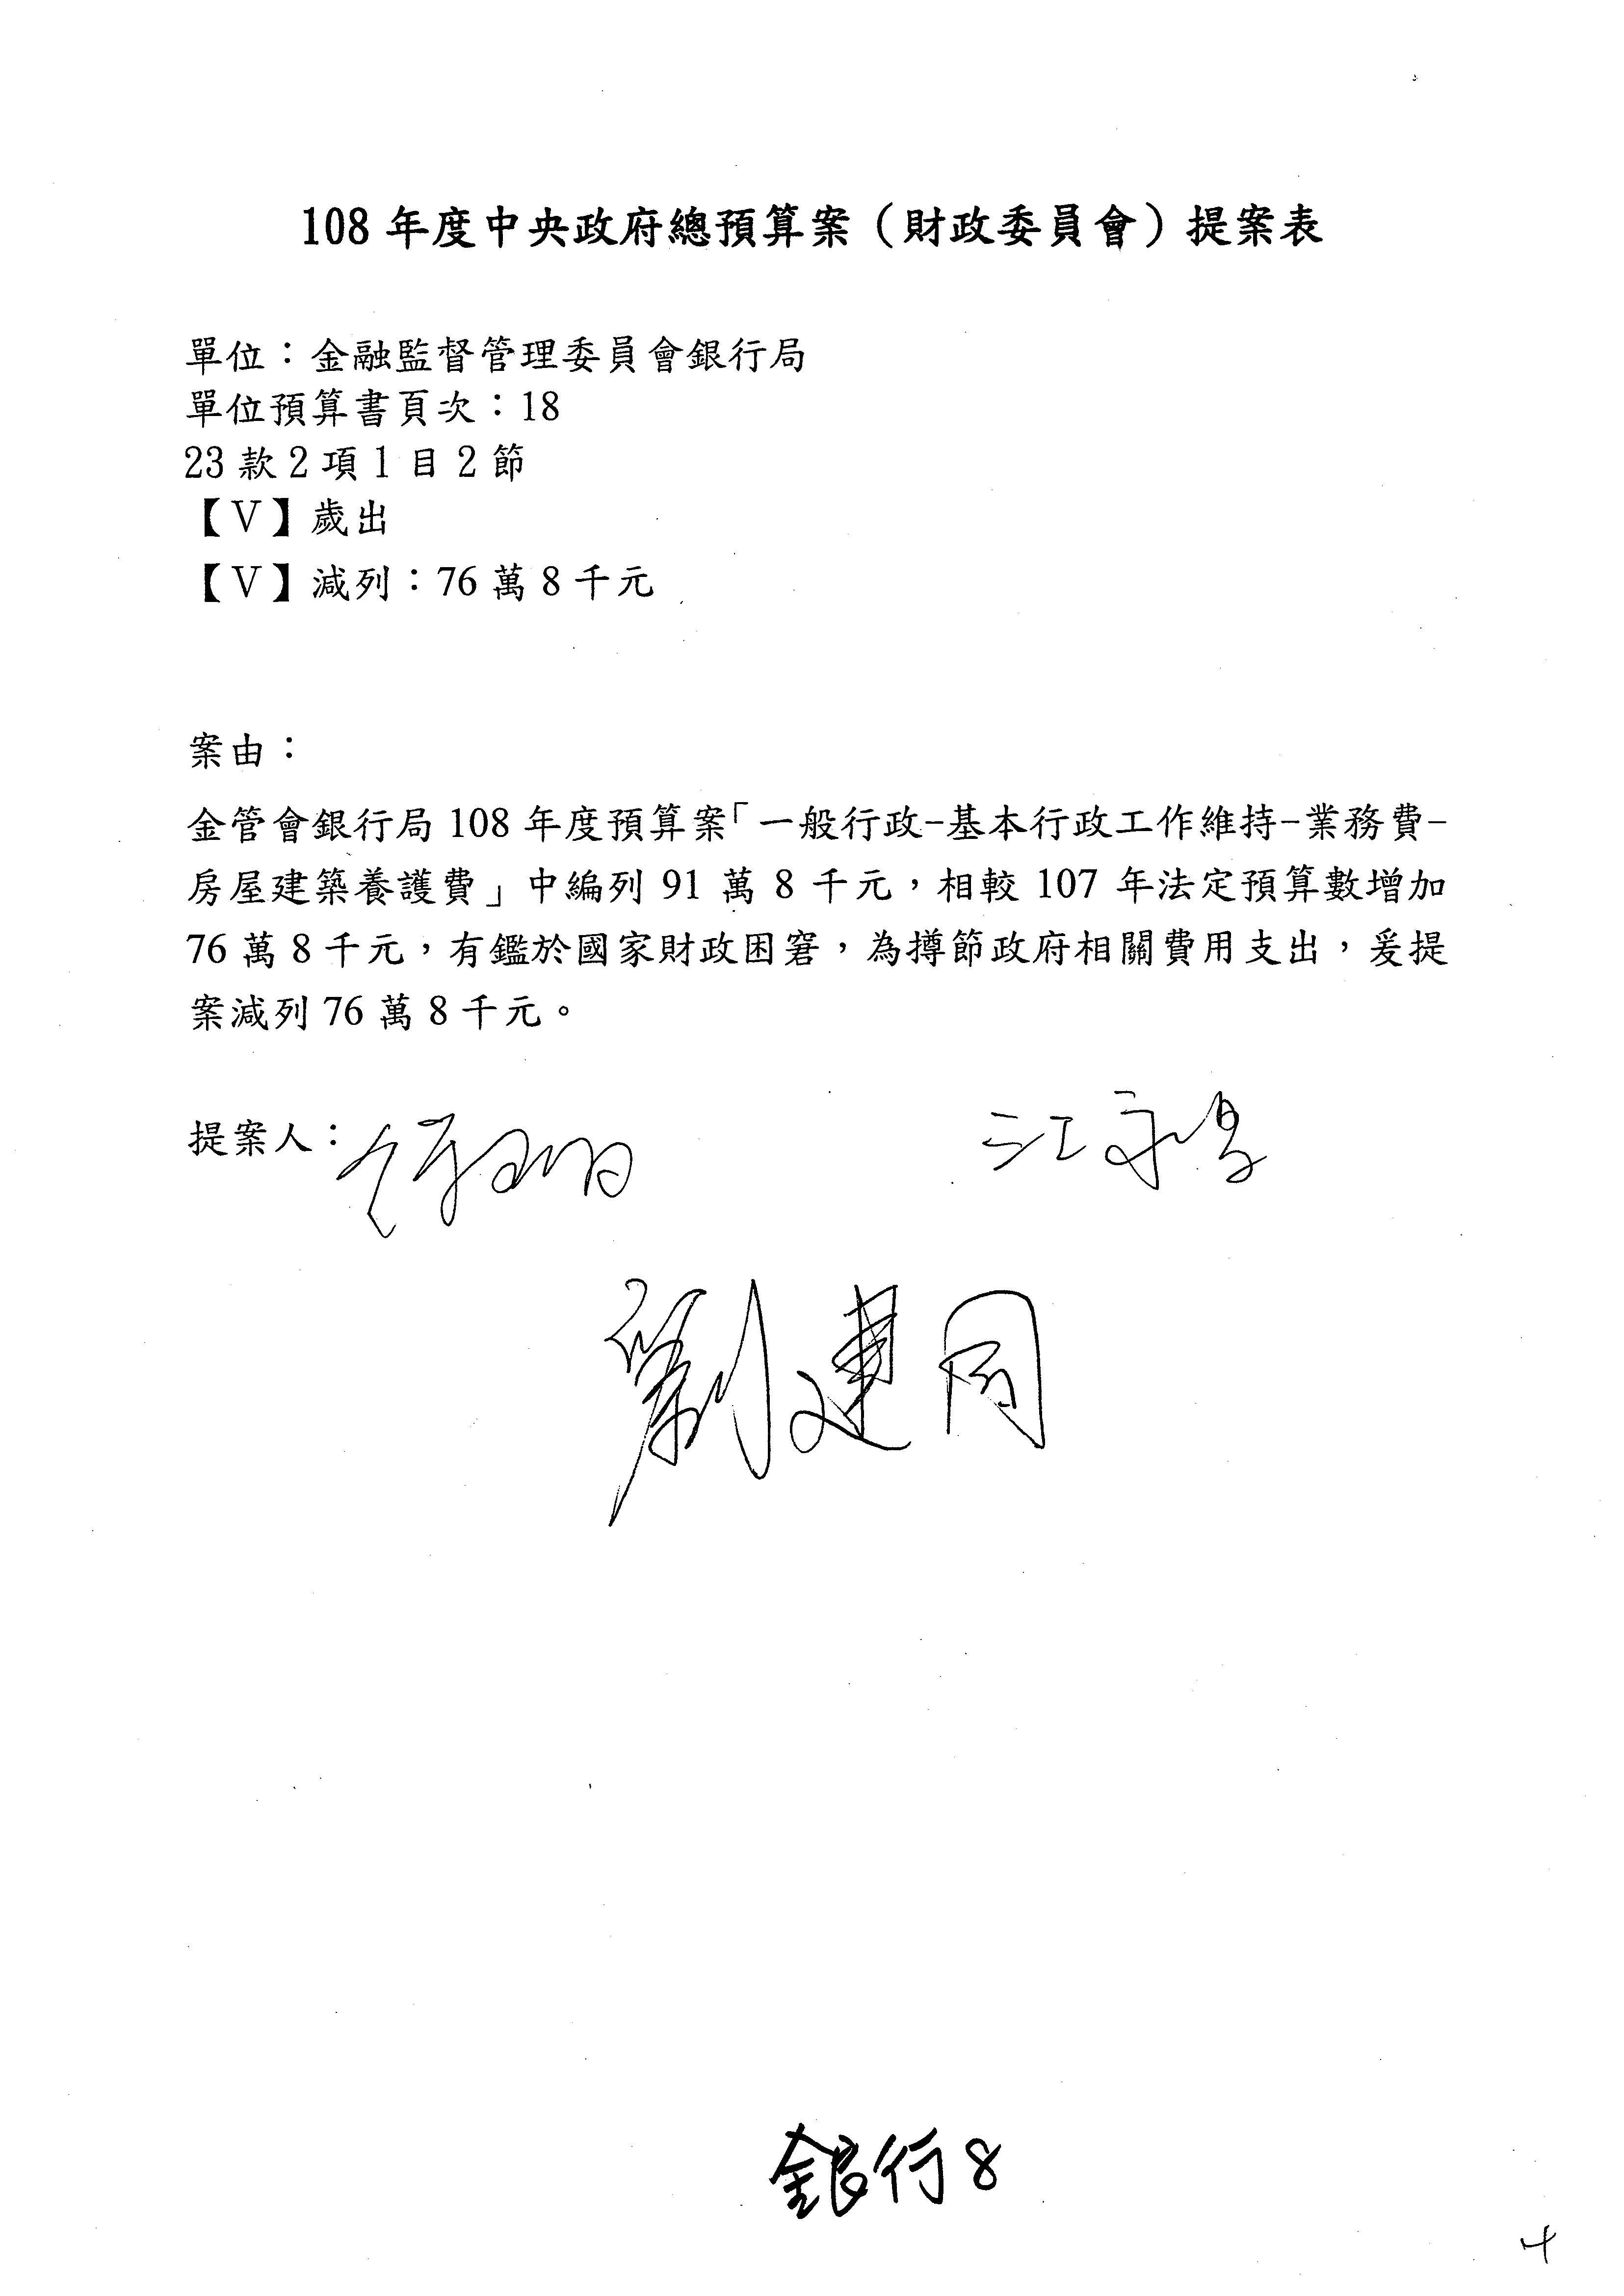 108 年度中央政府總預算案（財政委員會）提案表
單位：金融監督管理委員會銀行局
單位預算書頁次：18
23 款 2 項 1 目 2 節
【V】歲出
【V】減列：76 萬 8 千元
案由：
金管會銀行局 108 年度預算案「一般行政-基本行政工作維持-業務費-
房屋建築養護費」中編列 91 萬 8 千元，相較 107 年法定預算數增加
76 萬 8 千元，有鑑於國家財政困窘，為撙節政府相關費用支出，爰提
案減列 76 萬 8 千元。
提案人：
江永昌
劉建國
銀行 8
4